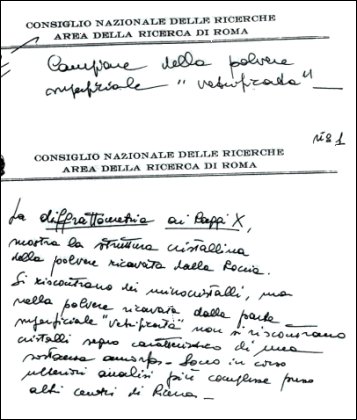 CONSIGLIO NAZIONALE DELLE RICERCHE
AREA DELLA RICERCA DI ROMA
Campione della polvere
superficiale "vetrificata"
n° 1
CONSIGLIO NAZIONALE DELLE RICERCHE
AREA DELLA RICERCA DI ROMA
La diffrattometria ai Raggi X,
mostra la struttura cristallina
della polvere ricavata dalla Roccia.
Si riscontrano dei microcristalli, ma
nella polvere ricavata dalla parte
superficiale "vetrificata" non si riscontrano
cristalli segno caratteristico di una
sostanza amorfa. Sono in corso
ulteriori analisi più complesse presso
altri centri di Ricerca.